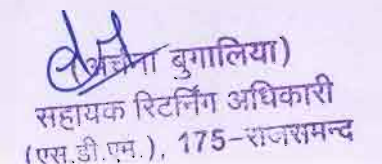 (अर्चना बुगालिया)
सहायक रिटर्निंग अधिकारी
(एस.डी.एम.), 175-राजसमन्द